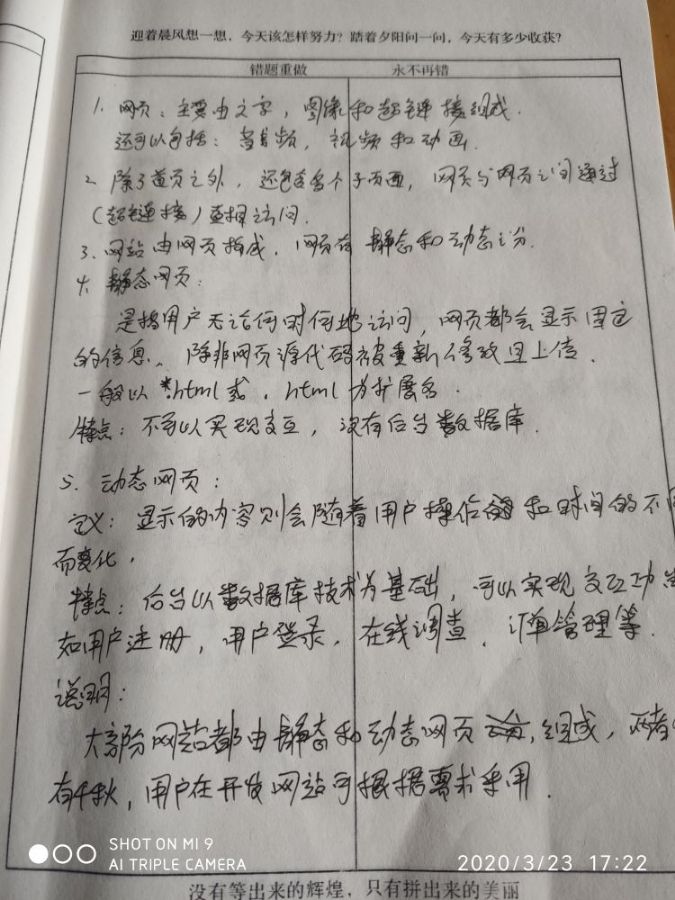 迎着晨风想一想，今天该怎样努力？踏着夕阳问一问，今天有多少收获？
错题重做 永不再错
1. 网页：主要由文字，图像和超链接组成.
还可以包括：音频，视频和动画.
2. 除了首页之外，还包含多个子页面，网页与网页之间通过
(超链接) 互相访问.
3. 网站由网页构成，网页有静态和动态之分.
4. 静态网页：
是指用户无论何时何地访问，网页都会显示固定
的信息。除非网页源代码被重新修改且上传.
一般以*.html或.html为扩展名.
特点：不可以实现交互，没有后台数据库.
5. 动态网页：
定义：显示的内容则会随着用户操作和时间的不同
而变化.
特点：后台以数据库技术为基础，可以实现交互功
如用户注册，用户登录，在线调查，订单管理等.
说明：
大部份网站都由静态和动态网页组成，两者
有千秋，用户在开发网站可根据需求采用.
SHOT ON MI 9
AI TRIPLE CAMERA
2020/3/23 17:22
没有等出来的辉煌，只有拼出来的美丽